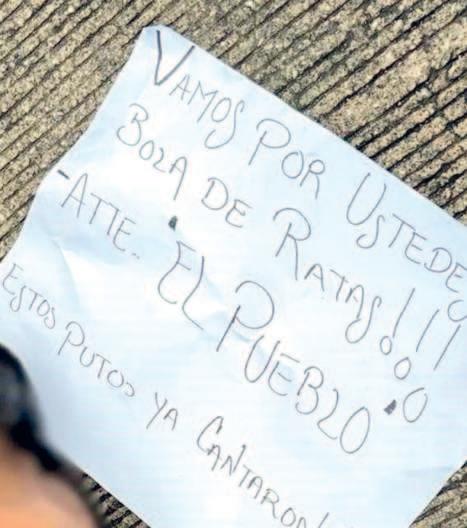 VAMOS POR USTEDES
BOZA DE RATAS!!!
-ATTE.. EL PUEBLO
ESTOS PUTOS YA CANTARON!